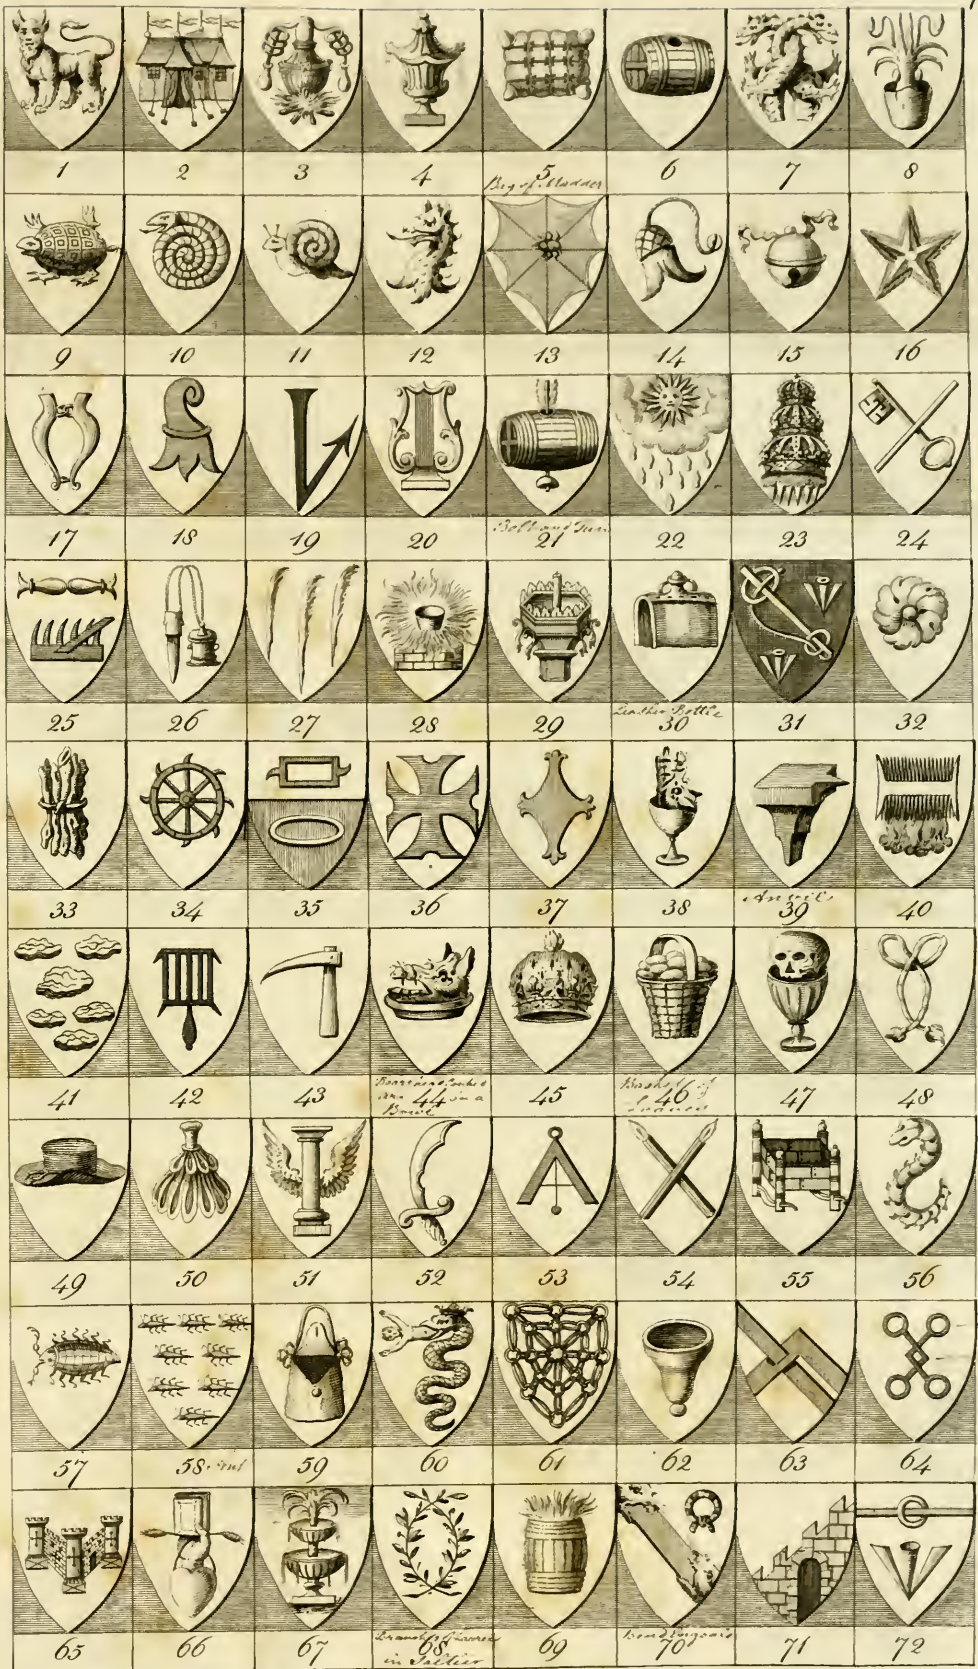 1 2 3 4 5 6 7 8
Bag of Madder
9 10 11 12 13 14 15 16
17 18 19 20 21 22 23 24
Bolt and Tun
25 26 27 28 29 30 31 32
Leather Bottle
33 34 35 36 37 38 39 40
Anvil
41 42 43 44 45 46 47 48
in a
Bowl
Basket of
49 50 51 52 53 54 55 56
57 58 Ant 59 60 61 62 63 64
65 66 67 68 69 70 71 72
in Saltier